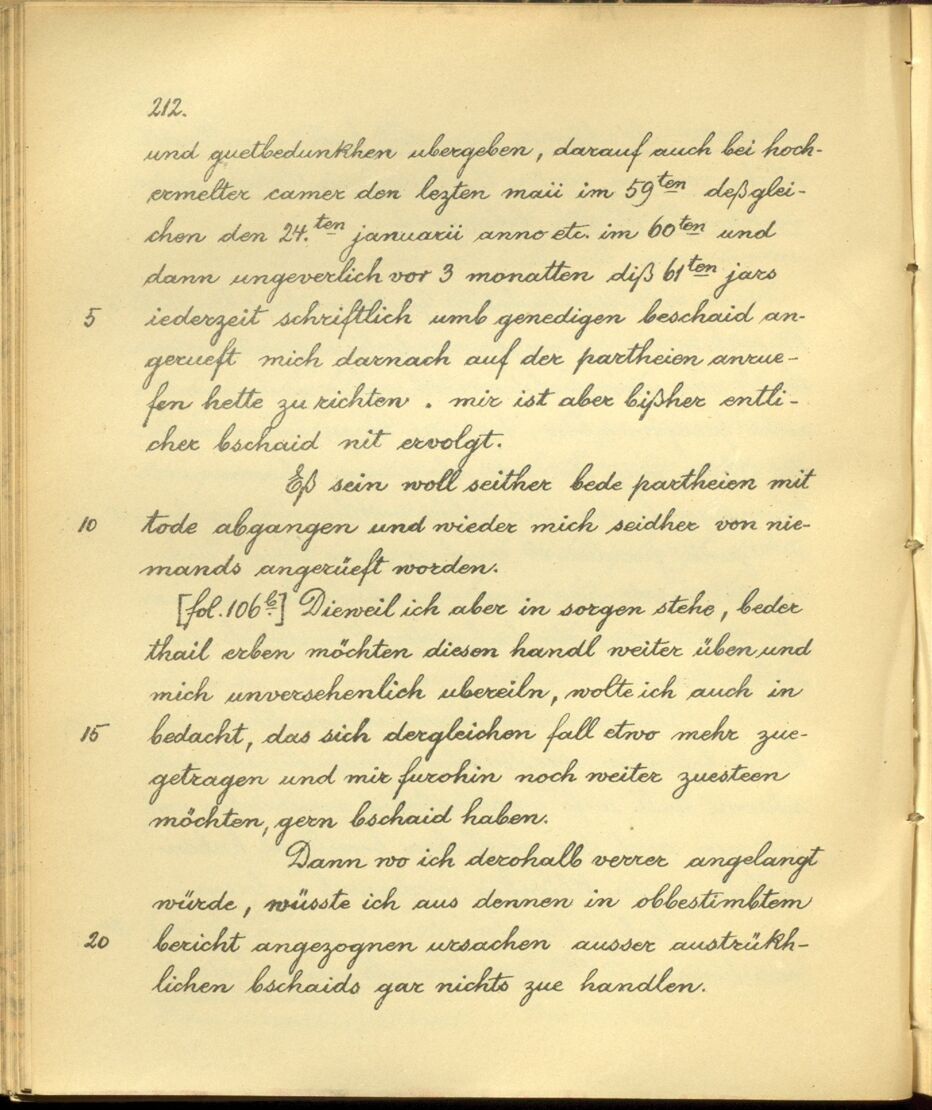 212.
und guetbedunkhen ubergeben, darauf auch bei hoch-
ermelter camer den lezten maii im 59ten deßglei-
chen den 24.ten januarii anno etc. im 60ten und
dann ungeverlich vor 3 monatten diß 61ten jars
5 iederzeit schriftlich umb genedigen beschaid an-
gerueft mich darnach auf der partheien anrue-
fen hette zu richten. mir ist aber bißher entli-
cher bschaid nit ervolgt.
Eß sein woll seither bede partheien mit
10 tode abgangen und wieder mich seidher von nie-
mands angerüeft worden.
[fol. 106b.] Dieweil ich aber in sorgen stehe, beder
thail erben möchten diesen handl weiter üben und
mich unversehenlich ubereiln, wolte ich auch in
15 bedacht, das sich dergleichen fall etwo mehr zue-
getragen und mir furohin noch weiter zuesteen
möchten, gern bschaid haben.
Dann wo ich derohalb verrer angelangt
würde, wüsste ich aus dennen in obbestimbtem
20 bericht angezognen ursachen ausser austrükh-
lichen bschaids gar nichts zue handlen.